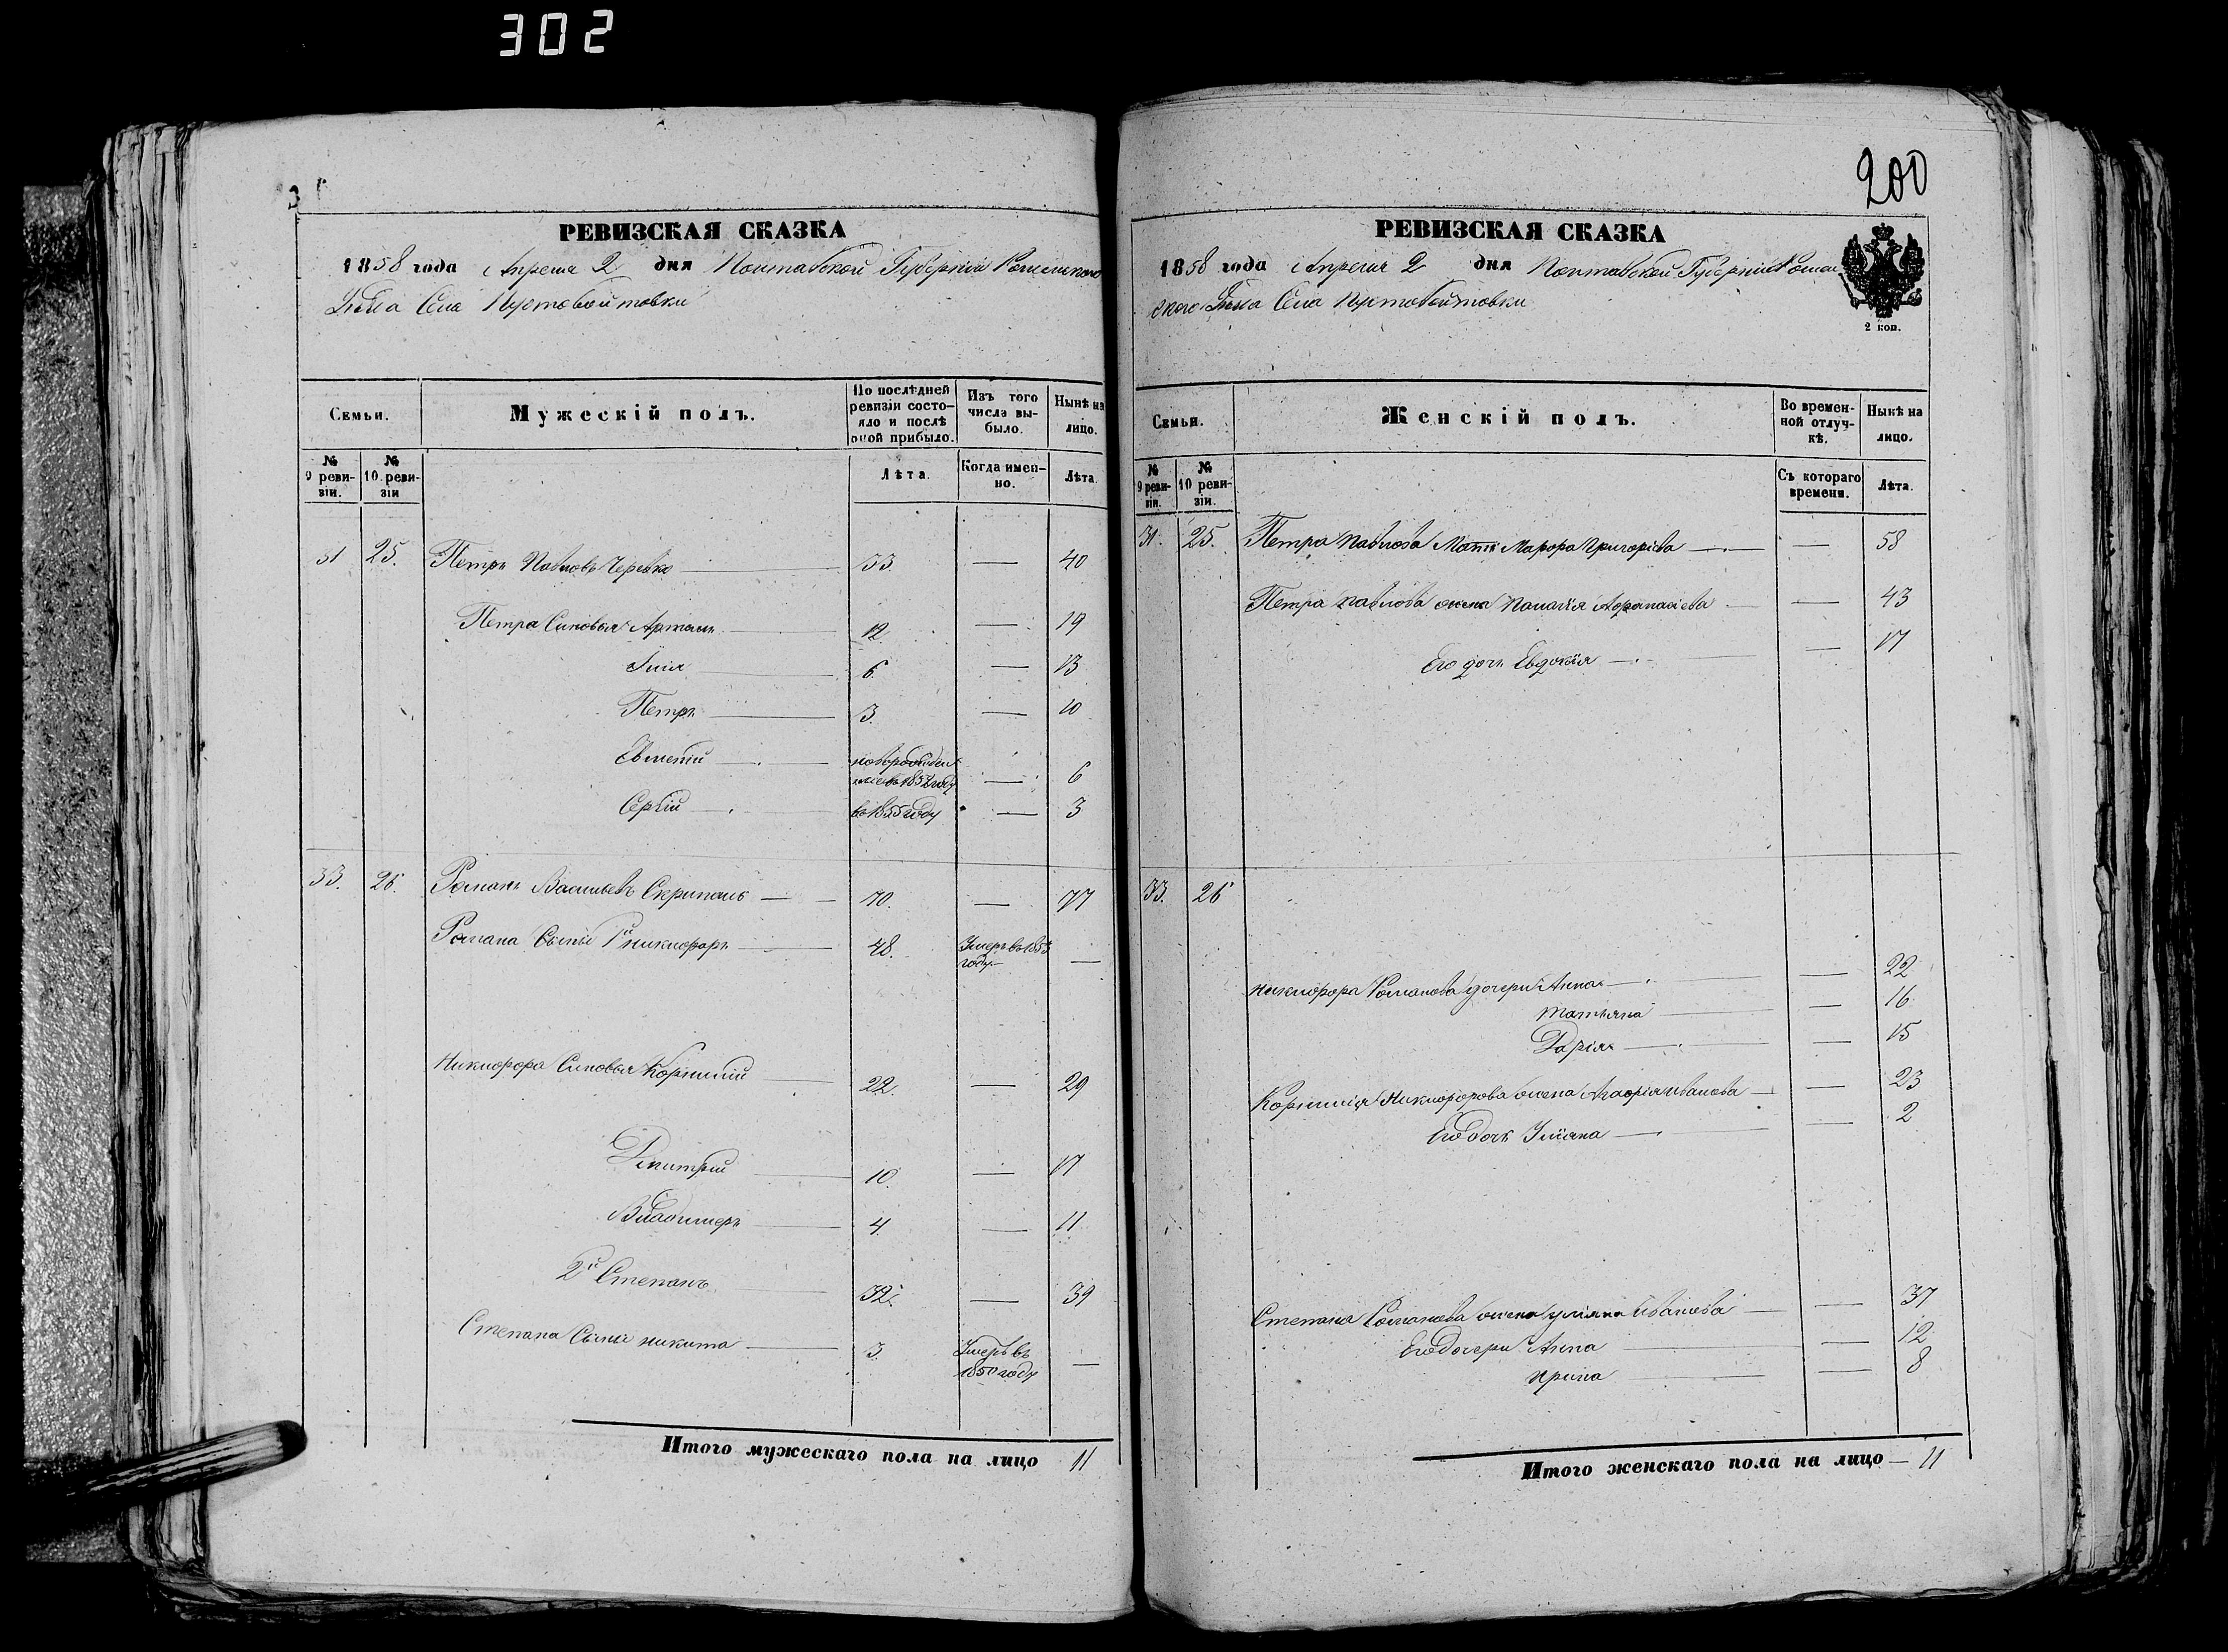 302
РЕВИЗСКАЯ СКАЗКА
1858 года Апреля 2 дня Полтавской Губерніи Роменского
Уѣзда Села Пустовойтовки
Семьи.
Мужескій полъ.
По послѣдней ревизіи состояло и послѣ оной прибыло.
Изъ того числа выбыло.
Нынѣ на лицо.
№ 9 ревизіи.
№ 10 ревизіи
Лѣта.
Когда именно.
Лѣта.
31 25. Петръ Павловъ Черевко 33. — 40
Петра Синовья Артемъ 12 — 19
Илія 6. — 13
Петръ 3. — 10
Евменій новорожден
въ 1852 году — 6
Сергій въ 1855 году — 3
33. 26. Романъ Васильевъ Скрипаль 70. — 77
Романа Сыны 1й Никифоръ 48. Умеръ въ 1853
году —
Никифора Синовья Корнилій 22. — 29
Димитрій 10. — 17
Владимеръ 4. — 11
2й Степанъ 32. — 39
Степана Сынъ Никита 3. Умеръ въ
1850 году —
Итого мужескаго пола на лицо 11
200
РЕВИЗСКАЯ СКАЗКА
1858 года Апреля 2 дня Полтавской Губерніи Ромен
ского Уѣзда Села Пустовойтовки
2 коп.
Семьи.
Женскій полъ.
Во временной отлучкѣ.
Нынѣ на лицо.
№ 9 ревизіи.
№ 10 ревизіи.
Съ котораго времени.
Лѣта.
31. 25. Петра Павлова Мати Марфа Григоріева — 58
Петра Павлова жена Палагія Афанасіева — 43
Его дочь Евдокія — 17
33. 26
Никифора Романова дочери Анна — 22
Татьяна — 16
Дарія — 15
Корнилія Никифорова жена Агафія Иванова — 23
Его дочь Уліяна — 2
Степана Романова жена Уліяна Иванова — 37
Его дочери Анна — 12
Ирина — 8
Итого женскаго пола на лицо — 11